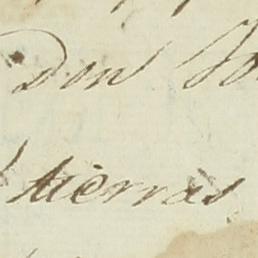 Don
tierras